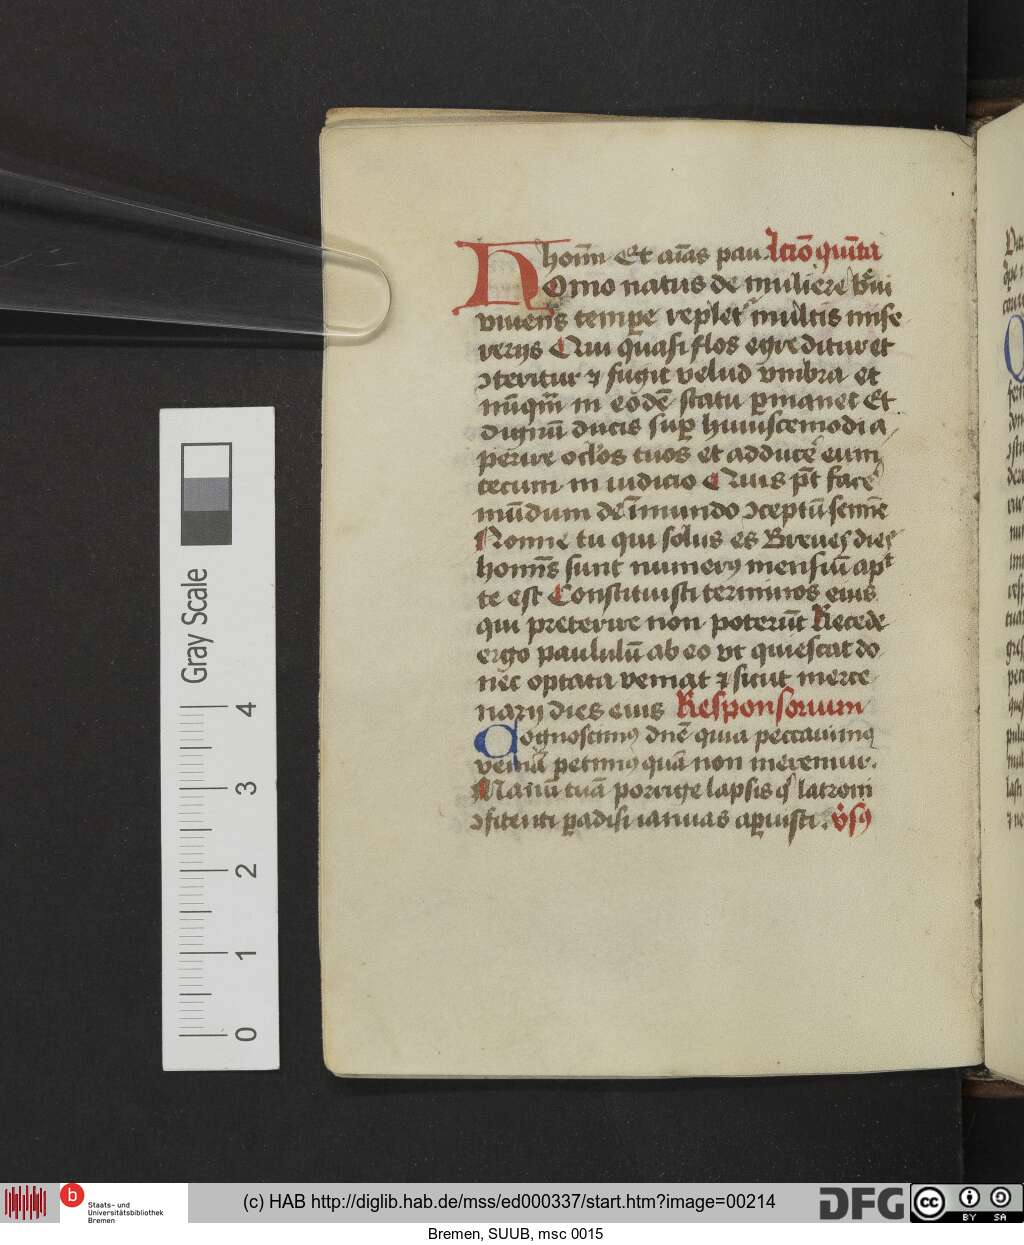 hoīm Et aīas pau. Lctiō quīta
Homo natus de muliere bͥui
viuens tempe replet' multis mise
rerijs Qui quasi flos egreditur et
ꝯteritur ⁊ fugit velud vmbra et
nūqm̄ in eodē statu ꝑmanet Et
dignū ducis suꝑ huiuscemodi a
perire oclōs tuos et adducē eum
tecum in iudicio Quis pt̄ face'
mūdum de īmundo ꝯceptū semīe
Nonne tu qui solus es Breues dies
homīs sunt numerꝰ mensiū apͭ
te est Constituisti terminos eius
qui preterire non poterūt Recede
ergo paululū ab eo vt quiescat do
nec optata veniat ⁊ sicut merce
narij dies eius Responsorium
Cognoscimꝰ dn̄e quia peccauimꝰ
veniā petimꝰ quā non meremur.
Manū tuā porrige lapsis qͥ latroni
ꝯfitenti ꝑadisi ianuas aꝑuisti. v̄sꝰ
Gray Scale
4
3
2
1
0
b
Staats- und
Universitätsbibliothek
Bremen
(c) HAB http://diglib.hab.de/mss/ed000337/start.htm?image=00214
DFG
cc
BY SA
Bremen, SUUB, msc 0015